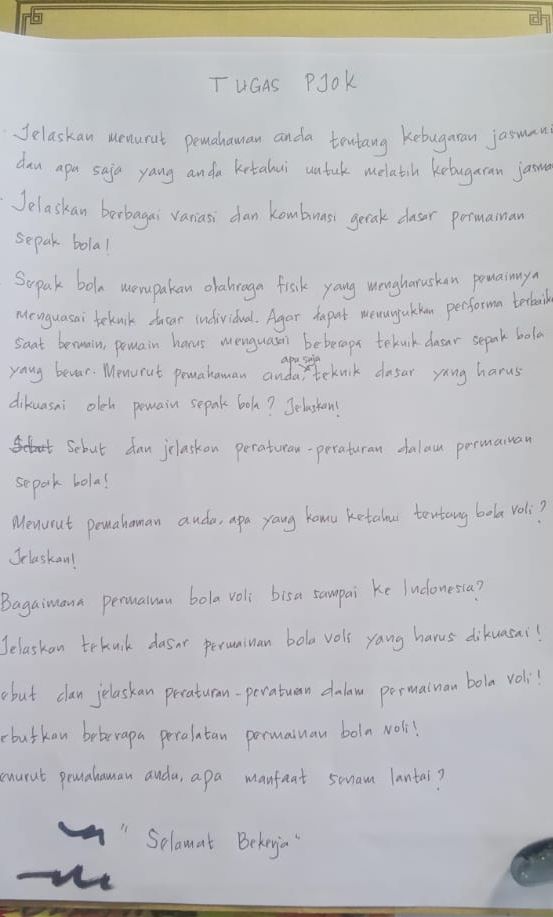 TUGAS PJOK
Jelaskan menurut pemahaman anda tentang kebugaran jasmani
dan apa saja yang anda ketahui untuk melatih kebugaran jasma
Jelaskan berbagai variasi dan kombinasi gerak dasar permainan
sepak bola!
Sepak bola merupakan olahraga fisik yang mengharuskan pemainnya
menguasai teknik dasar individual. Agar dapat menunjukkan performa terbaik
saat bermain, pemain harus menguasai beberapa teknik dasar sepak bola
yang benar. Menurut pemahaman anda, apa saja teknik dasar yang harus
dikuasai oleh pemain sepak bola? Jelaskan!
Sebut dan jelaskan peraturan-peraturan dalam permainan
sepak bola!
Menurut pemahaman anda, apa yang kamu ketahui tentang bola voli?
Jelaskan!
Bagaimana permainan bola voli bisa sampai ke Indonesia?
Jelaskan teknik dasar permainan bola voli yang harus dikuasai!
ebut dan jelaskan peraturan-peraturan dalam permainan bola voli!
ebutkan beberapa peralatan permainan bola voli!
enurut pemahaman anda, apa manfaat senam lantai?
"Selamat Bekerja"